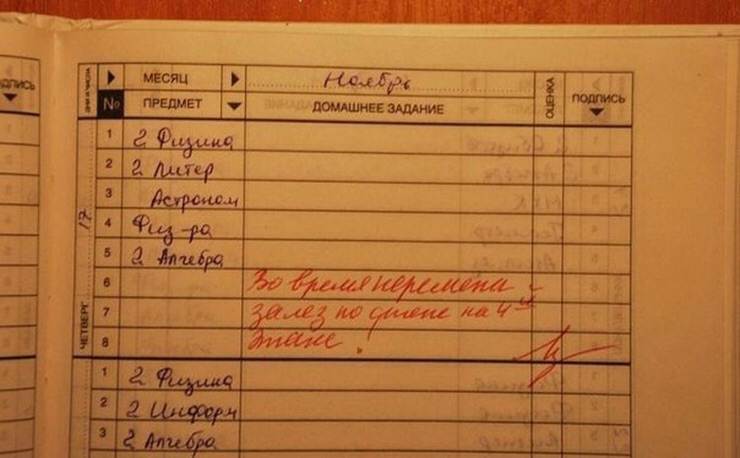 ДНИ И ЧИСЛА МЕСЯЦ Ноябрь ОЦЕНКА
ПОДПИСЬ № ПРЕДМЕТ ДОМАШНЕЕ ЗАДАНИЕ ПОДПИСЬ
1 2 Физика
2 2 Литер
3 Астроном
4 Физ-ра
5 2 Алгебра
6 Во время перемены
7 залез по стене на 4ый
8 этаж!
ЧЕТВЕРГ 17
1 2 Физика
2 2 Информ
3 2 Алгебра